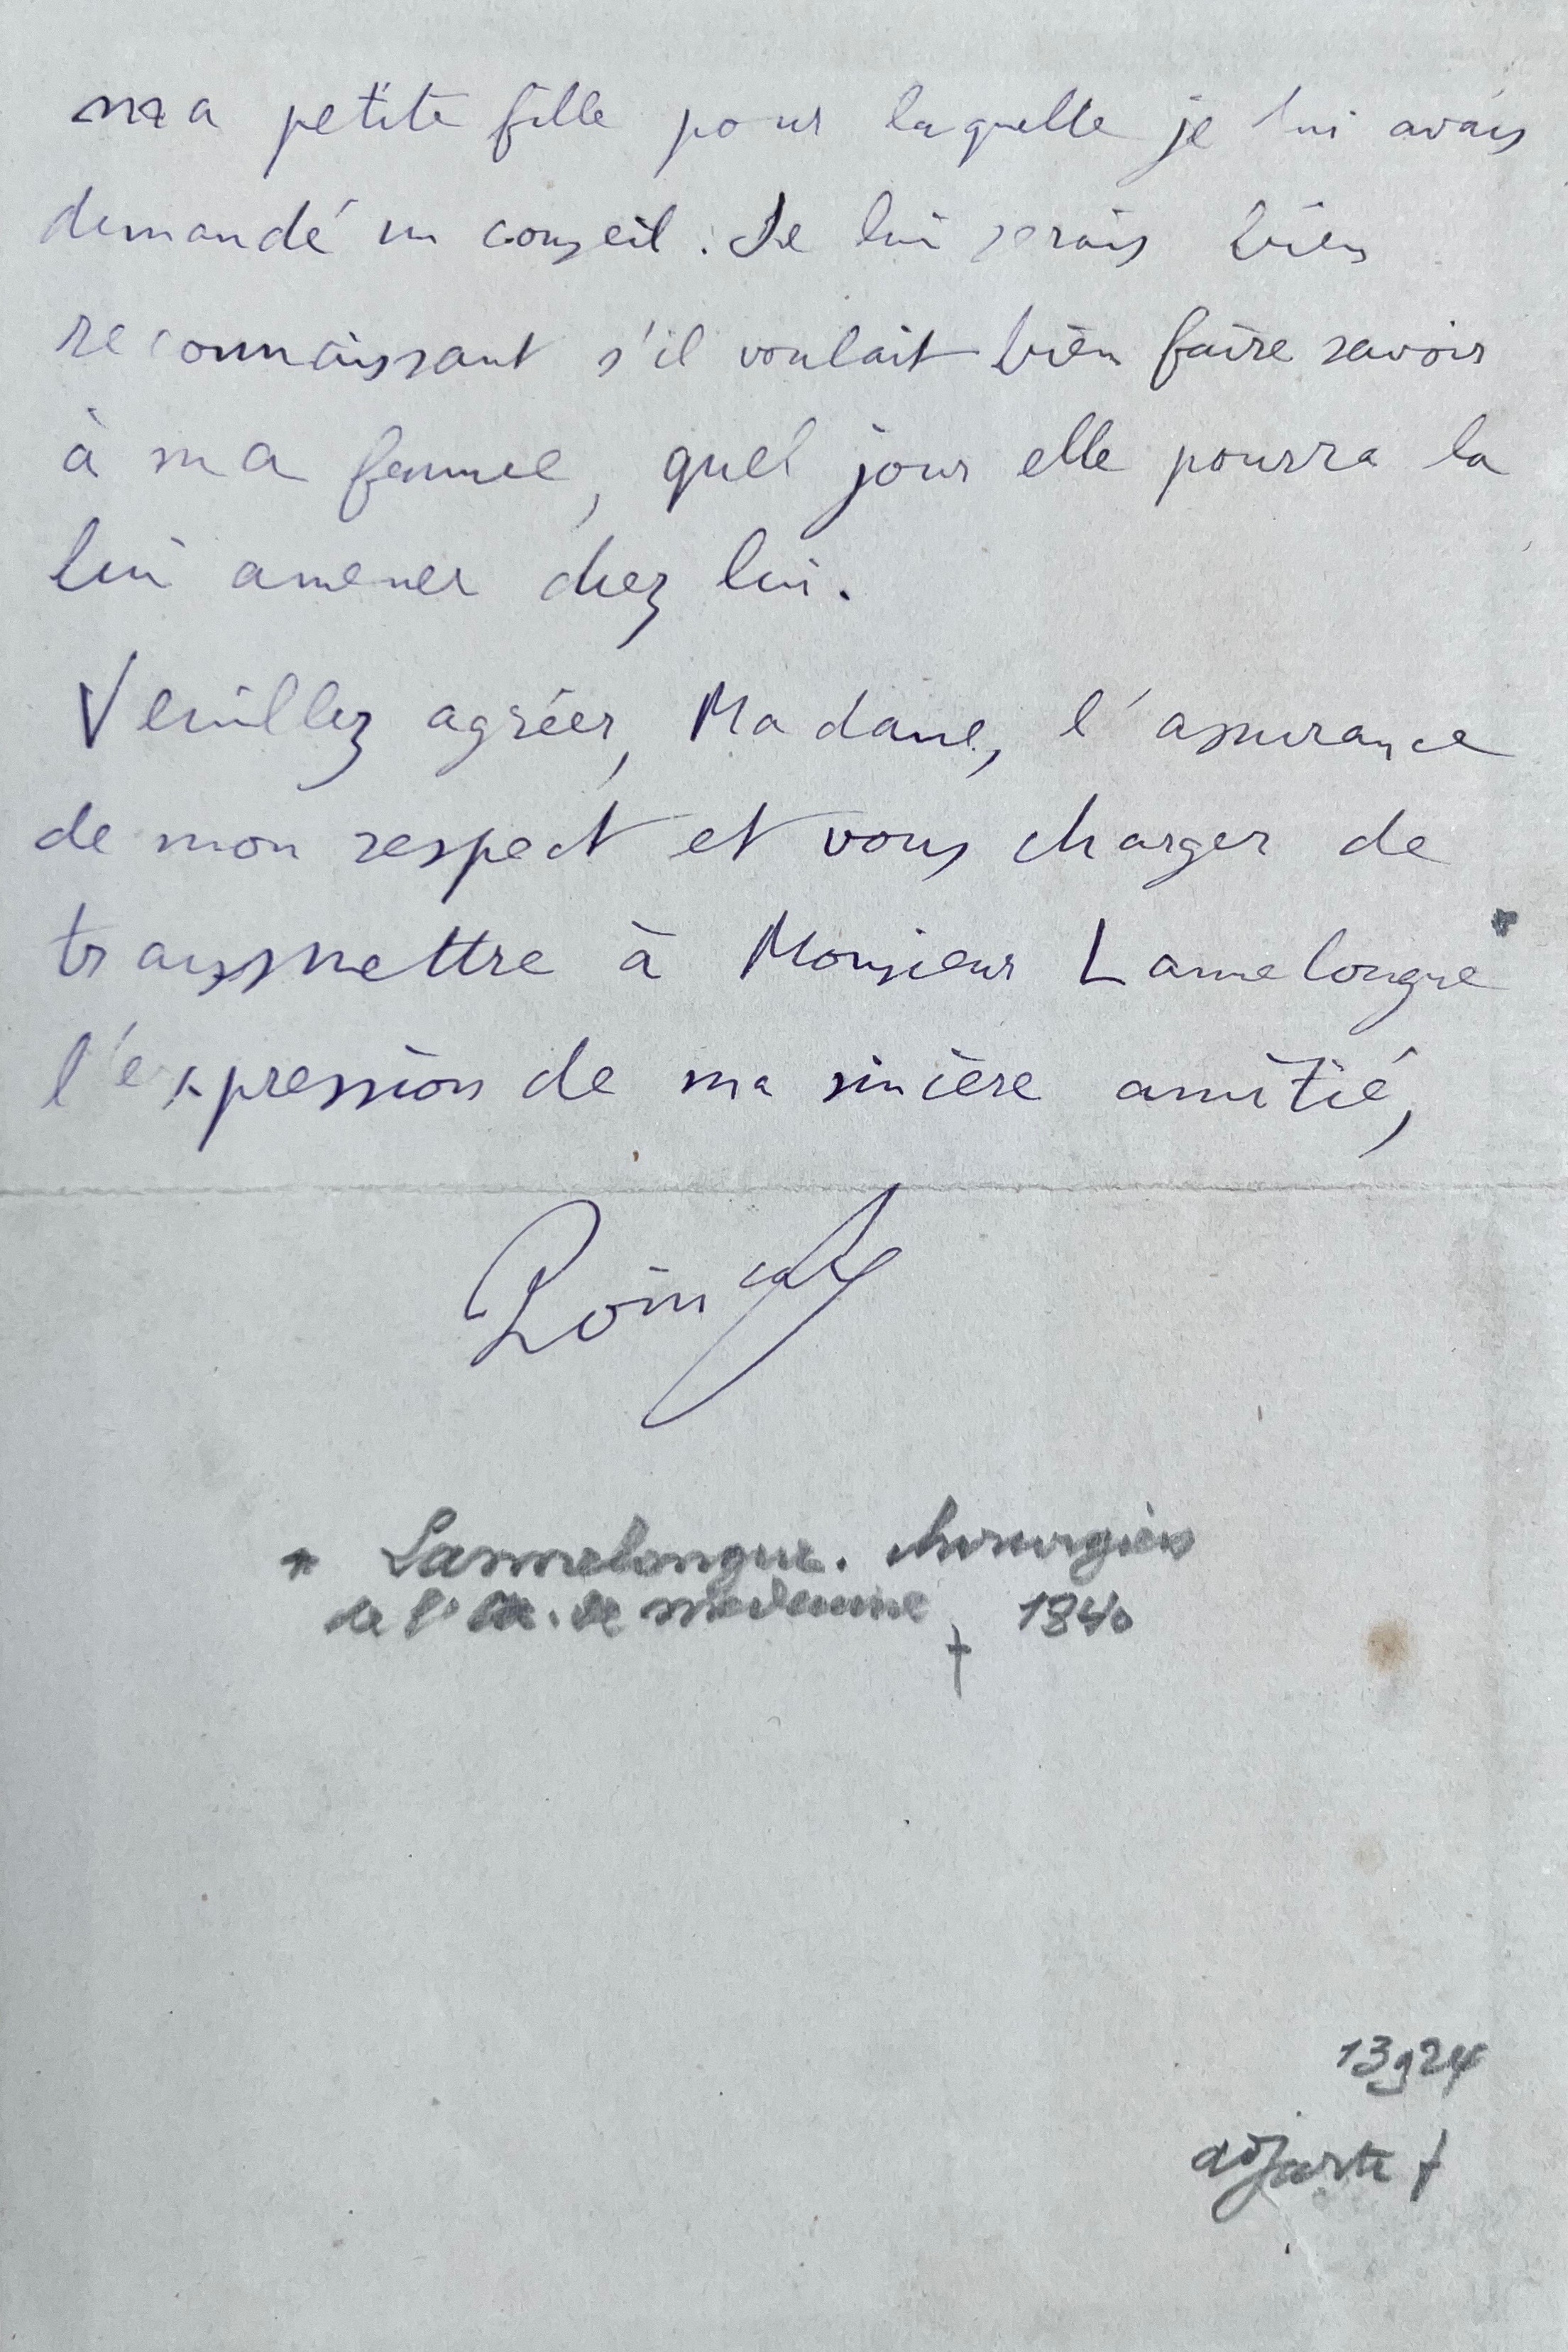 ma petite fille pour laquelle je lui avais
demandé un conseil. Je lui serais bien
reconnaissant s'il voulait bien faire savoir
à ma femme, quel jour elle pourra la
lui amener chez lui.
Veuillez agréer, Madame, l'assurance
de mon respect et vous charger de
transmettre à Monsieur Lannelongue *
l'expression de ma sincère amitié,
Poincaré
* Lannelongue. chirurgien
de l' de médecine † 1840
13924